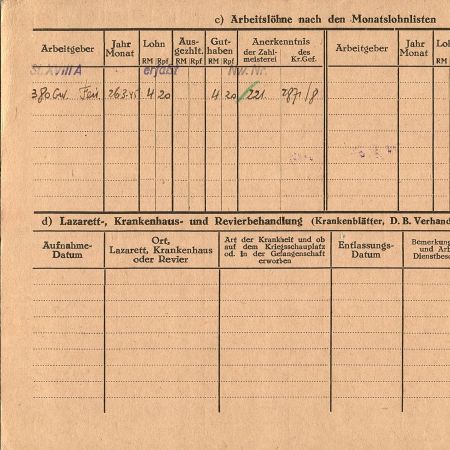 c) Arbeitslöhne nach den Monatslohnlisten
Arbeitgeber Jahr Monat Lohn RM Rpf Ausgezhlt. RM Rpf Guthaben RM Rpf Anerkenntnis der Zahlmeisterei des Kr.Gef. Arbeitgeber Jahr Monat
St. XVIII A erfaßt Nw. Nr.
380 Gw. 26.3.45 4 20 4 20 221 2871/8
d) Lazarett-, Krankenhaus- und Revierbehandlung (Krankenblätter, D. B. Verhand
Aufnahme-Datum Ort, Lazarett, Krankenhaus oder Revier Art der Krankheit und ob auf dem Kriegsschauplatz od. in der Gefangenschaft erworben Entlassungs-Datum Bemerkung und Arb Dienstbesc